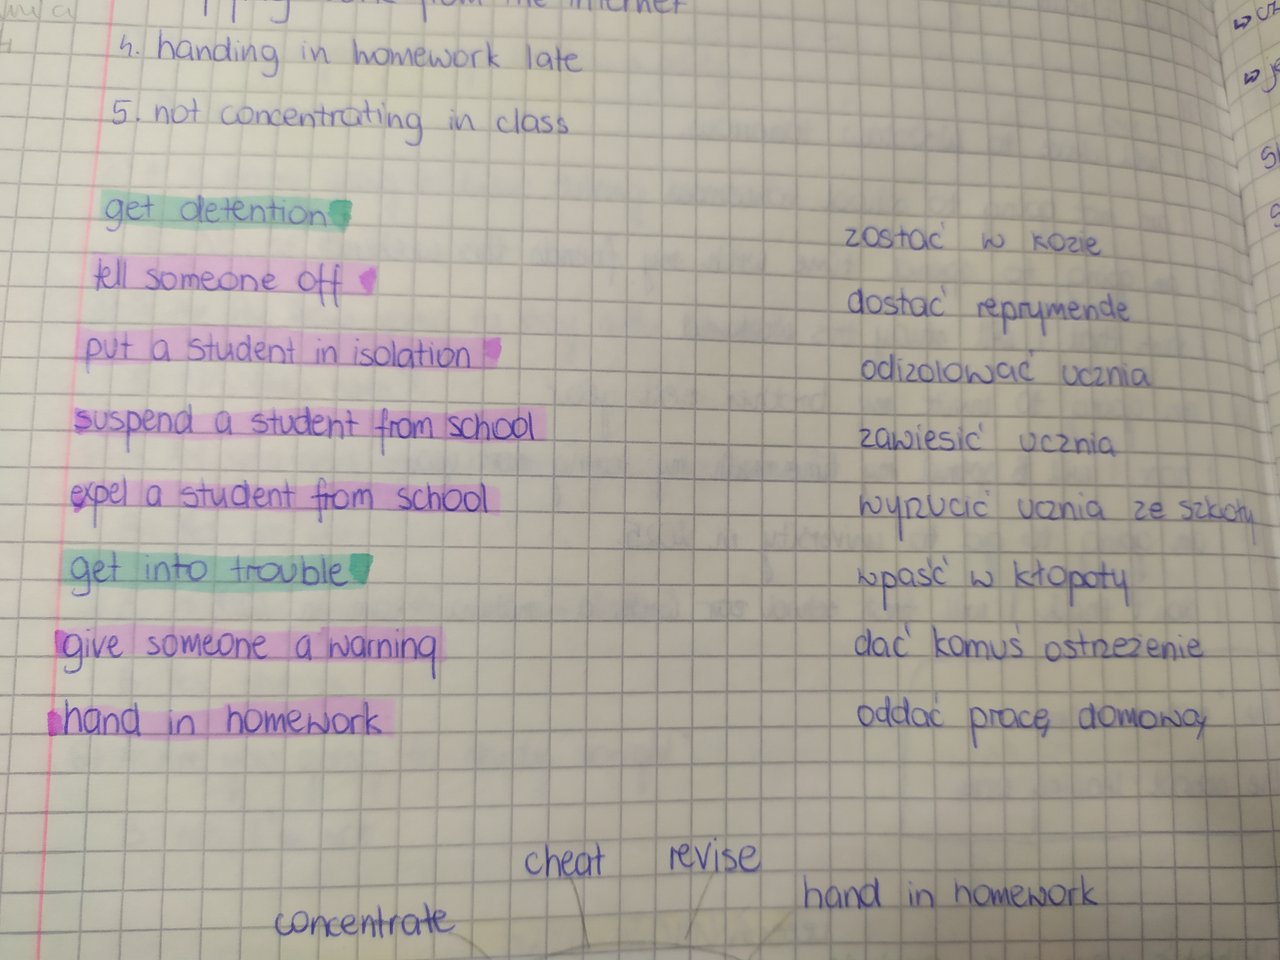 from the internet
4. handing in homework late
5. not concentrating in class
get detention zostać w kozie
tell someone off dostać reprymende
put a student in isolation odizolować ucznia
suspend a student from school zawiesić ucznia
expel a student from school wyrzucić ucznia ze szkoły
get into trouble wpaść w kłopoty
give someone a warning dać komuś ostrzeżenie
hand in homework oddać pracę domową
cheat revise
hand in homework
concentrate